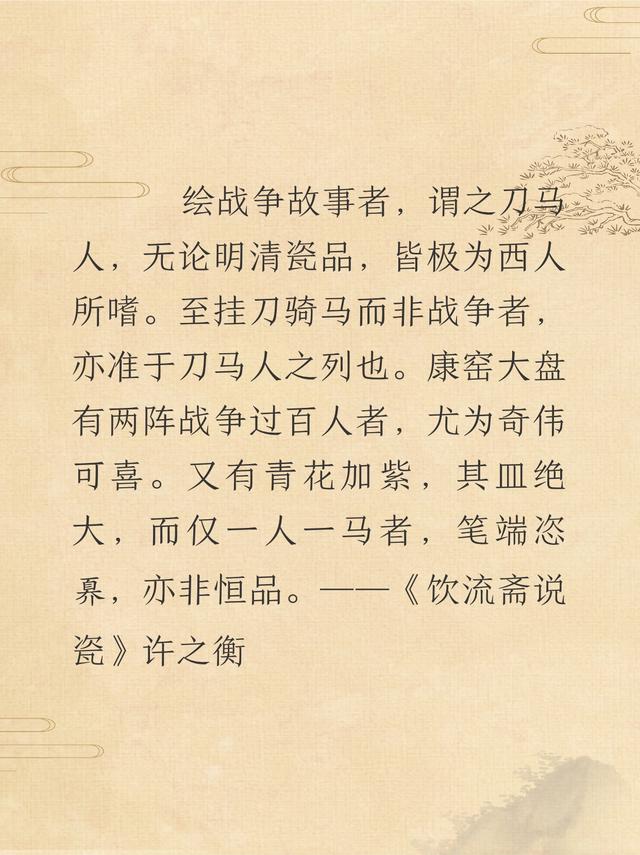 绘战争故事者，谓之刀马
人，无论明清瓷品，皆极为西人
所嗜。至挂刀骑马而非战争者，
亦准于刀马人之列也。康窑大盘
有两阵战争过百人者，尤为奇伟
可喜。又有青花加紫，其皿绝
大，而仅一人一马者，笔端恣
奡，亦非恒品。——《饮流斋说
瓷》许之衡